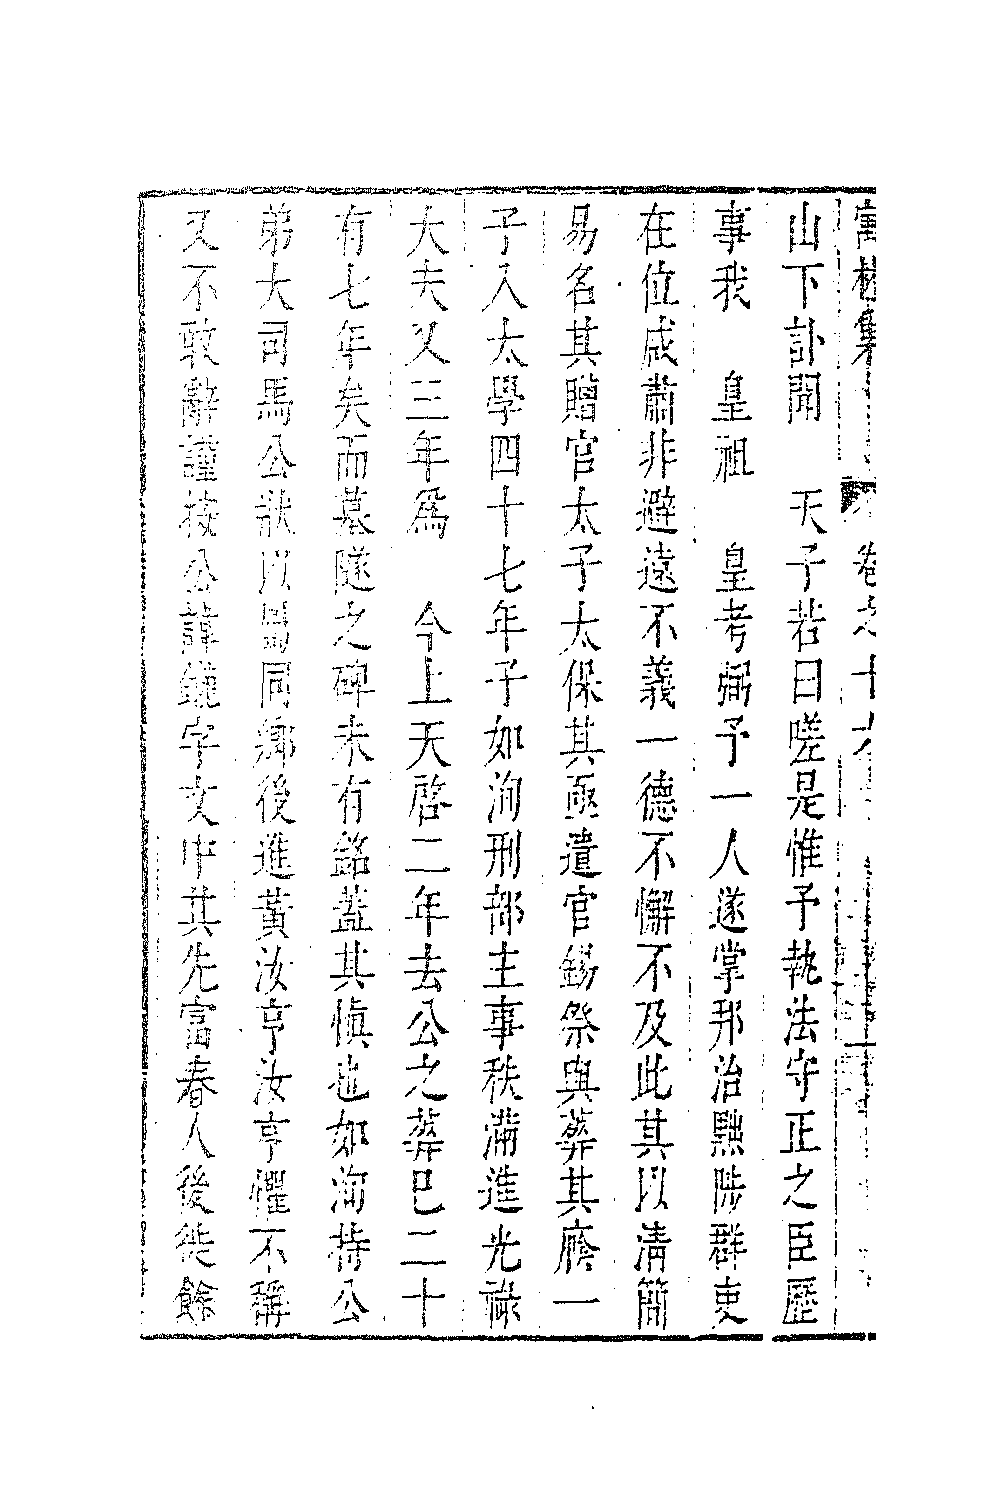 寓林集 卷之十
山下訃聞 天子若曰嗟是惟予執法守正之臣歷
事我 皇祖 皇考弼予一人遂掌邦治黜陟群吏
在位咸肅非避遠不義一德不懈不及此其以清簡
易名其贈官太子太保其亟遣官錫祭與葬其廕一
子入太學四十七年子如洵刑部主事秩滿進光祿
大夫又三年爲 今上天啓二年去公之葬已二十
有七年矣而墓隧之碑未有銘蓋其愼也如洵持公
弟大司馬公狀以 同鄉後進黃汝亨汝亨懼不稱
又不敢辭謹按公諱鑨字文中其先富春人後徙餘